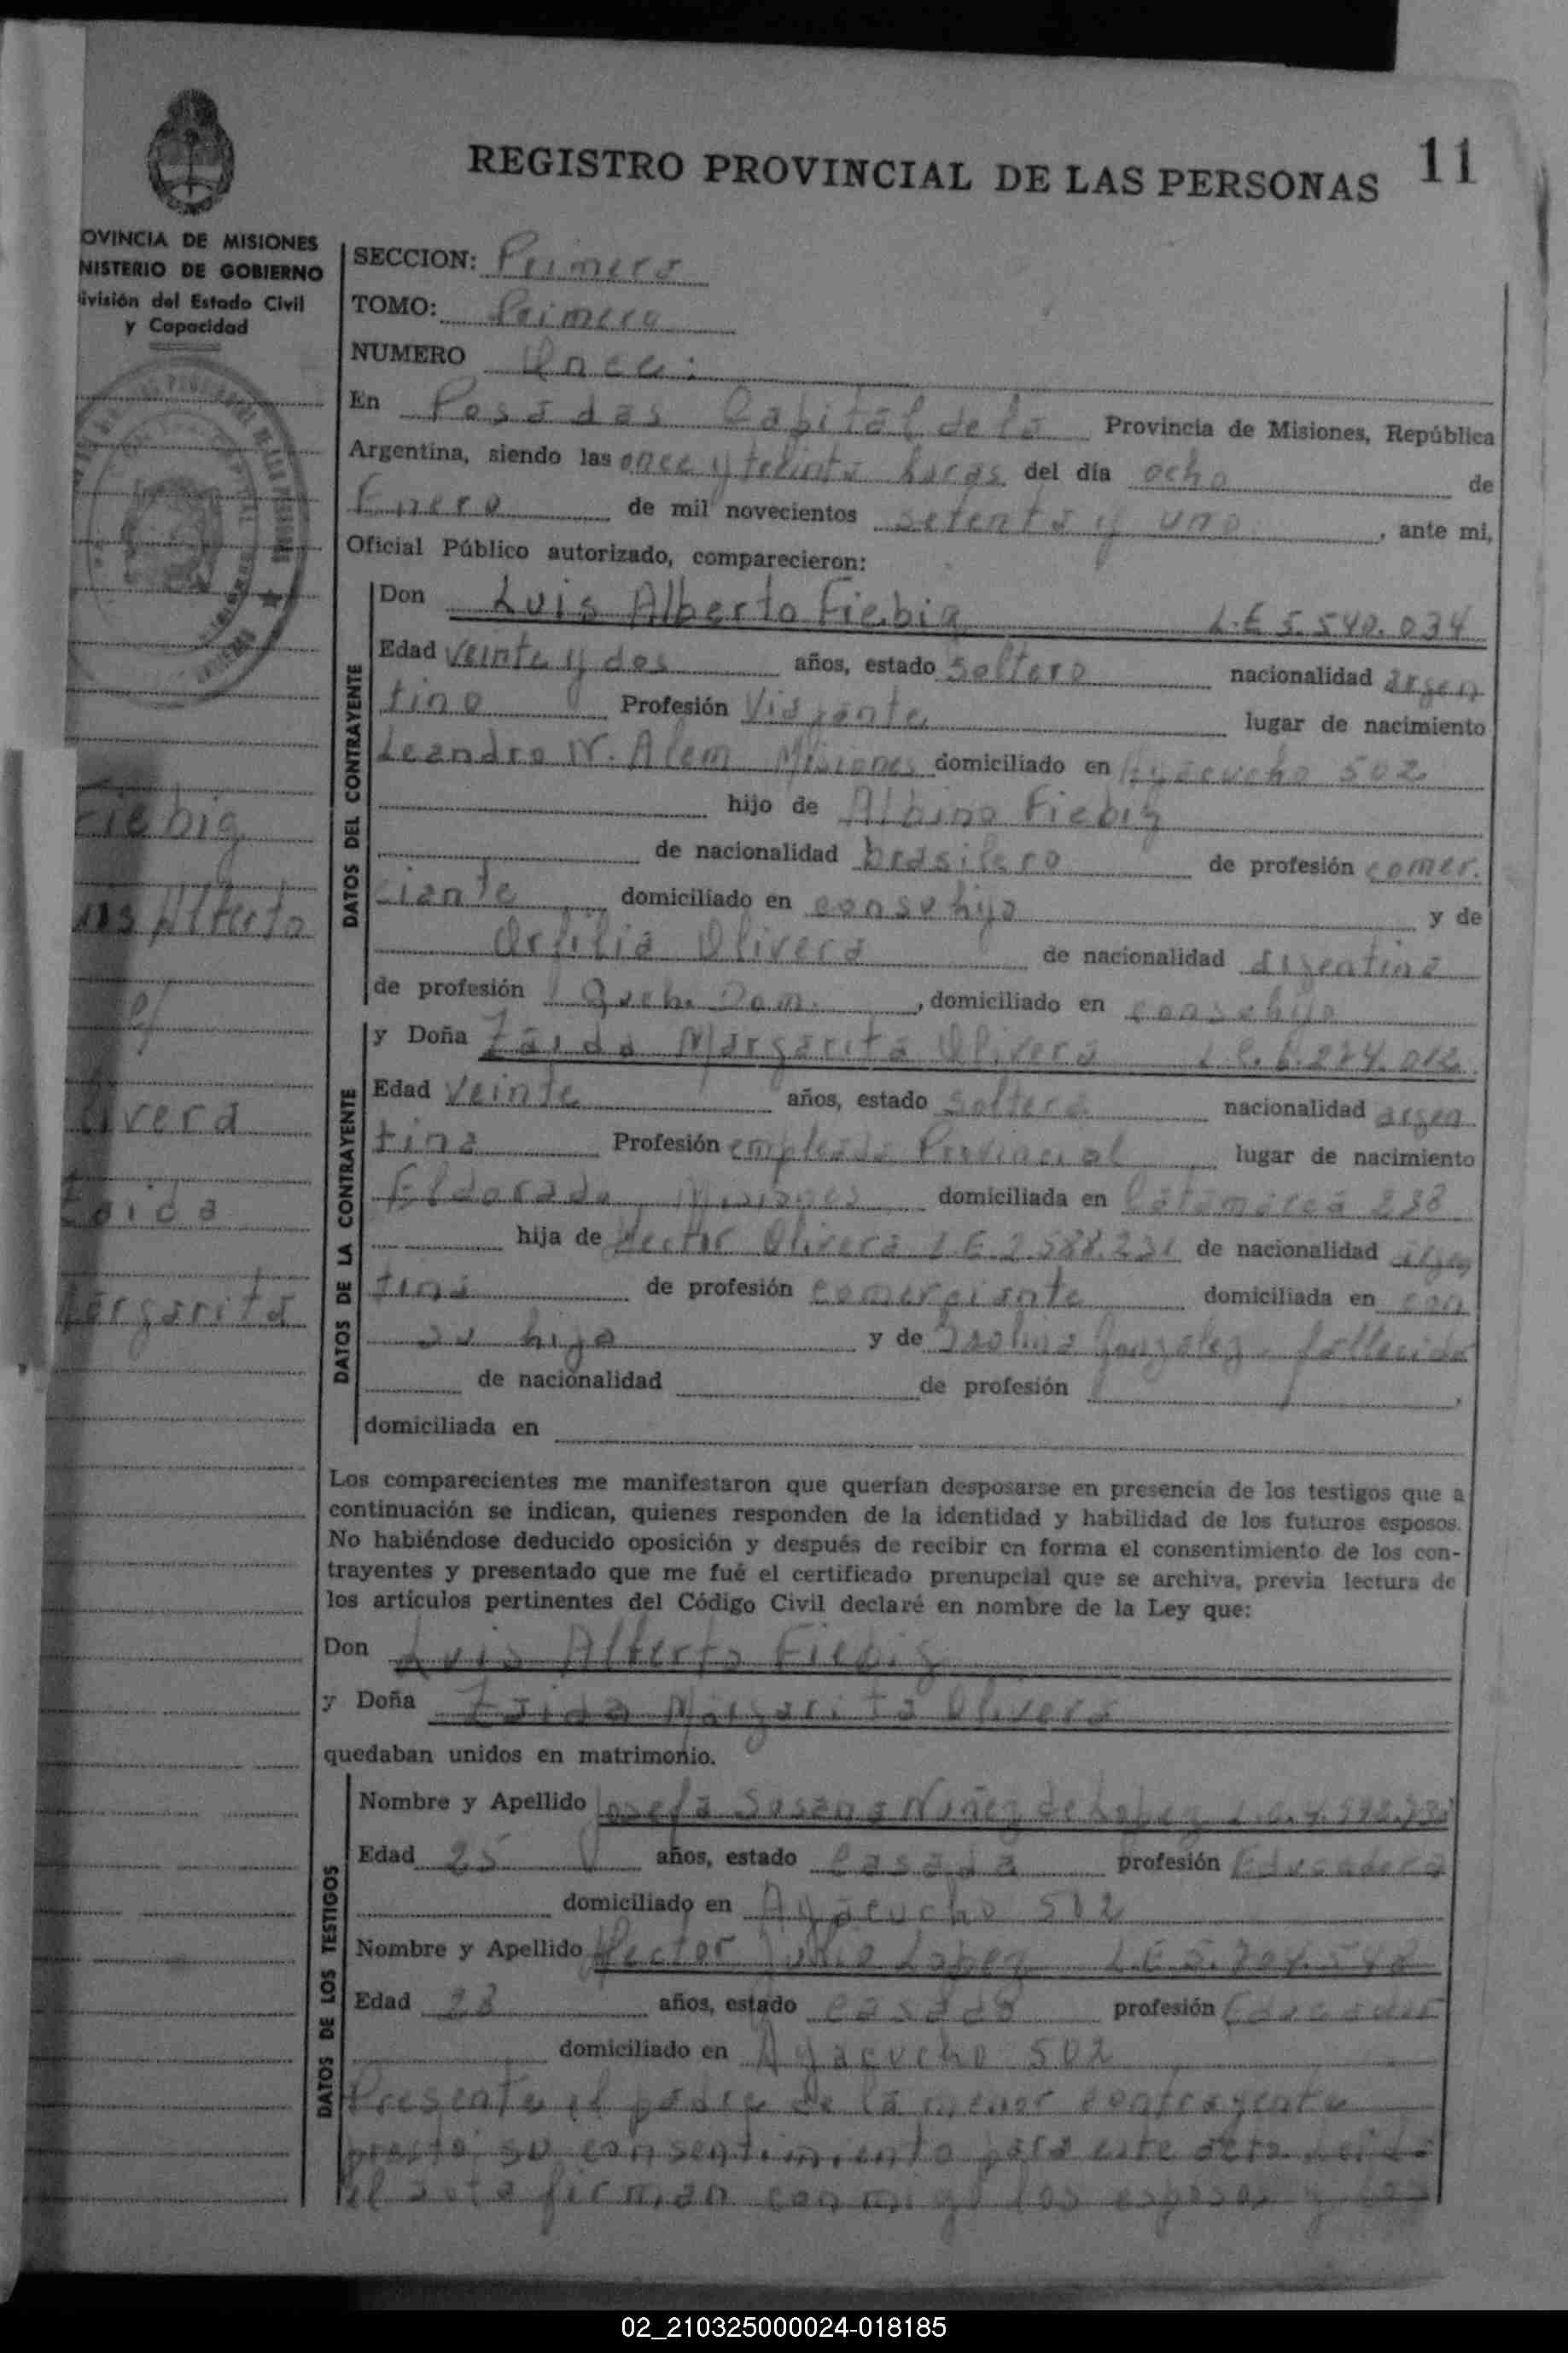 REGISTRO PROVINCIAL DE LAS PERSONAS 11
OVINCIA DE MISIONES
NISTERIO DE GOBIERNO
ivisión del Estado Civil
y Capacidad
SECCION: Primera
TOMO: Primero
NUMERO Once.
En Posadas Capital de la Provincia de Misiones, República
Argentina, siendo las once y treinta horas del día ocho de
Enero de mil novecientos setenta y uno, ante mi,
Oficial Público autorizado, comparecieron:
DATOS DEL CONTRAYENTE
Don Luis Alberto Fiebig L.E 5.540.034
Edad veinte y dos años, estado soltero nacionalidad argen
tino Profesión lugar de nacimiento
Leandro N. Alem Misiones domiciliado en Ayacucho 502
hijo de Albino Fiebig
de nacionalidad brasilero de profesión comer.
ciante domiciliado en con su hijo y de
Olivera de nacionalidad argentina
de profesión Dom., domiciliado en con su hijo
Fiebig
Alberto
y
ivera
Zaida
argarita
DATOS DE LA CONTRAYENTE
y Doña Zaida Margarita Olivera
Edad veinte años, estado soltera nacionalidad argen
tina Profesión empleada Provincial lugar de nacimiento
Eldorado Misiones domiciliada en Catamarca
hija de Hector Olivera L E 2.588.231 de nacionalidad argen
tina de profesión comerciante domiciliada en con
su hija y de Isolina Gonzalez, fallecida
de nacionalidad de profesión ,
domiciliada en
Los comparecientes me manifestaron que querían desposarse en presencia de los testigos que a
continuación se indican, quienes responden de la identidad y habilidad de los futuros esposos.
No habiéndose deducido oposición y después de recibir en forma el consentimiento de los con-
trayentes y presentado que me fué el certificado prenupcial que se archiva, previa lectura de
los artículos pertinentes del Código Civil declaré en nombre de la Ley que:
Don Luis Alberto Fiebig
y Doña Zaida Margarita Olivera
quedaban unidos en matrimonio.
DATOS DE LOS TESTIGOS
Nombre y Apellido Josefa Susana Nuñez de Lopez
Edad 25 años, estado casada profesión Educadora
domiciliado en Ayacucho 502
Nombre y Apellido Hector Julio Lopez
Edad 28 años, estado casado profesión Educador
domiciliado en Ayacucho 502
Presente el padre de la menor contrayente
presta su consentimiento para este acto. Leida
el acta firman conmigo los esposos y los
02_210325000024-018185